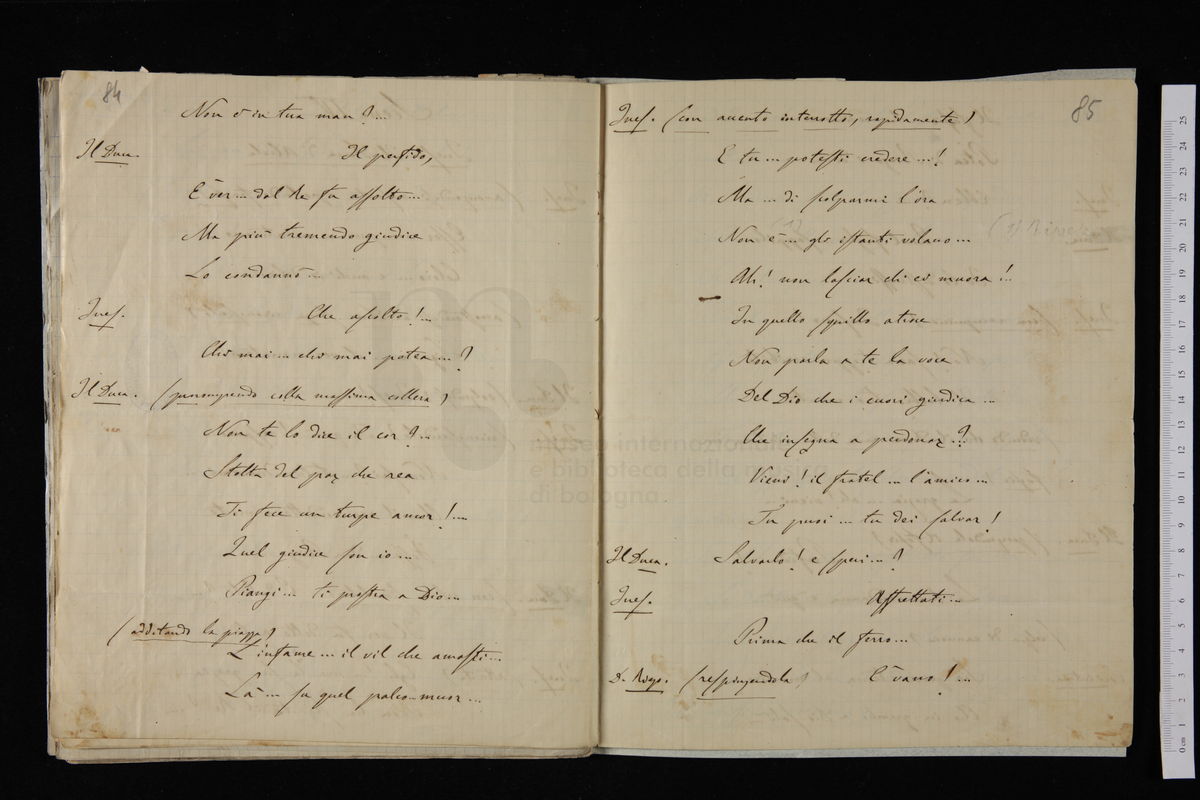 84
Non è in tua man?...
Il Duca. Il perfido,
È ver... dal Re fu assolto...
Ma più tremendo giudice
Lo condannò...
Ines. Che ascolto!...
Chi mai... chi mai potea...?
Il Duca. (prorompendo colla massima collera)
Non te lo dice il cor?...
Stolta del par che rea
Ti fece un turpe amor!...
Quel giudice son io...
Piangi... ti prostra a Dio...
(additando la piazza)
L'infame... il vil che amasti...
Là... su quel palco muor...
85
Ines. (con accento interrotto, rapidamente)
E tu... potesti credere...!
Ma... di scolparmi l'ora
Non è... gli istanti volano...
Ah! non lasciar ch'ei muora!..
In quello squillo atroce
Non parla a te la voce
Del Dio che i cuori giudica...
Che insegna a perdonar?.
Vieni! il fratel... l'amico...
Tu puoi... tu dei salvar!
Il Duca. Salvarlo! e speri...?
Ines. Affrettati...
Prima che il ferro...
D. Rigo. (respingendola) È vano!...
museo internazionale
e biblioteca della musica
di bologna
0 cm 1 2 3 4 5 6 7 8 9 10 11 12 13 14 15 16 17 18 19 20 21 22 23 24 25